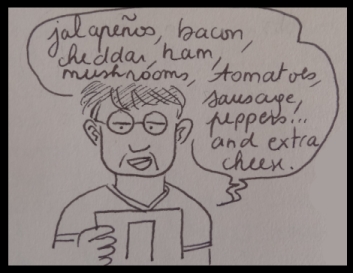 jalapeños, bacon,
cheddar, ham,
mushrooms, tomatoes,
sausage,
peppers...
and extra
cheese.